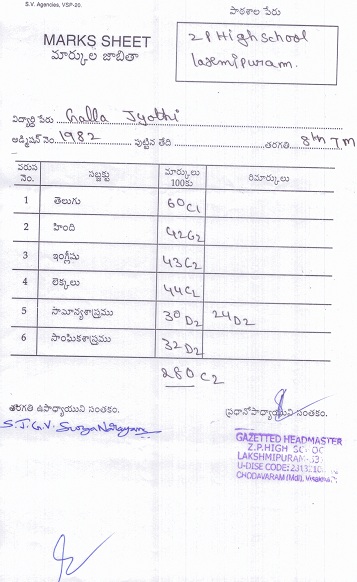 S.V. Agencies, VSP-20.
పాఠశాల పేరు
MARKS SHEET
మార్కుల జాబితా
Z P High school
Laxmipuram.
విద్యార్థి పేరు Galla Jyothi
అడ్మిషన్ నెం. 1982 పుట్టిన తేది తరగతి 8th TM
వరుస నెం. సబ్జక్టు మార్కులు 100కు రిమార్కులు
1 తెలుగు 60 C1
2 హింది 42 C2
3 ఇంగ్లీషు 43 C2
4 లెక్కలు 44 C2
5 సామాన్యశాస్త్రము 30 D2 24 D2
6 సాంఘికశాస్త్రము 32 D2
280 C2
తరగతి ఉపాధ్యాయుని సంతకం.
ప్రధానోపాధ్యాయుని సంతకం.
S.J.G.V. Surya Narayana
GAZETTED HEADMASTER
Z.P.HIGH
LAKSHMIPURAM
U-DISE CODE:
CHODAVARAM (Mdl),